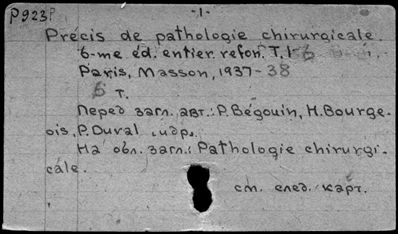 P923P
-1-
Précis de pathologie chirurgicale.
6-me éd. entier. refon. T. 1-6
Paris, Masson, 1937-38
6 т.
Перед загл. авт.: P. Bégouin, H. Bourge-
ois, P. Duval и др.
На обл. загл.: Pathologie chirurgi-
cale.
см. след. карт.